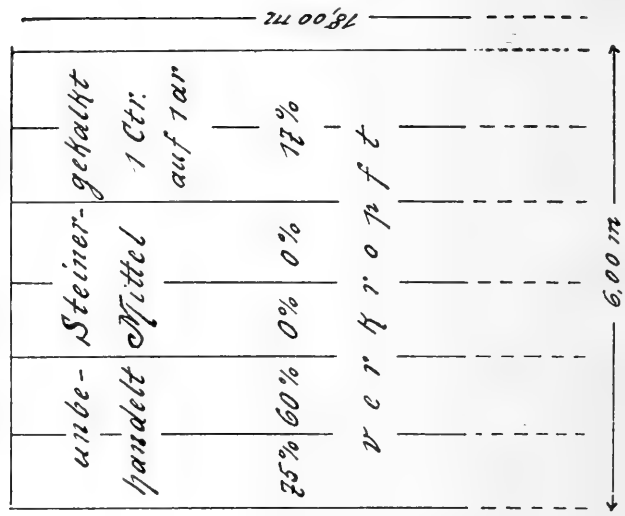 unbe-
handelt
Steiner-
Mittel
gekalkt
1 Ctr.
auf 1 ar
75% 60% 0% 0% 17%
verkropft
6,00 m
18,00 m